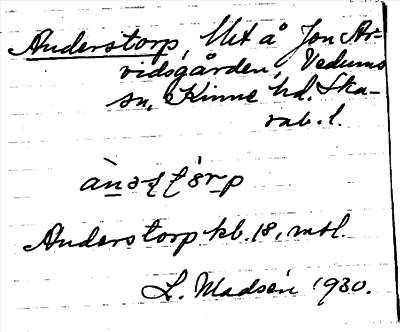 Anderstorp, Utt å Jon Ar-
vidsgården, Vedums
sn, Kinne hd. Ska-
rab. l.
Anderstorp kb. 18, mtl.
L. Madsén 1930.